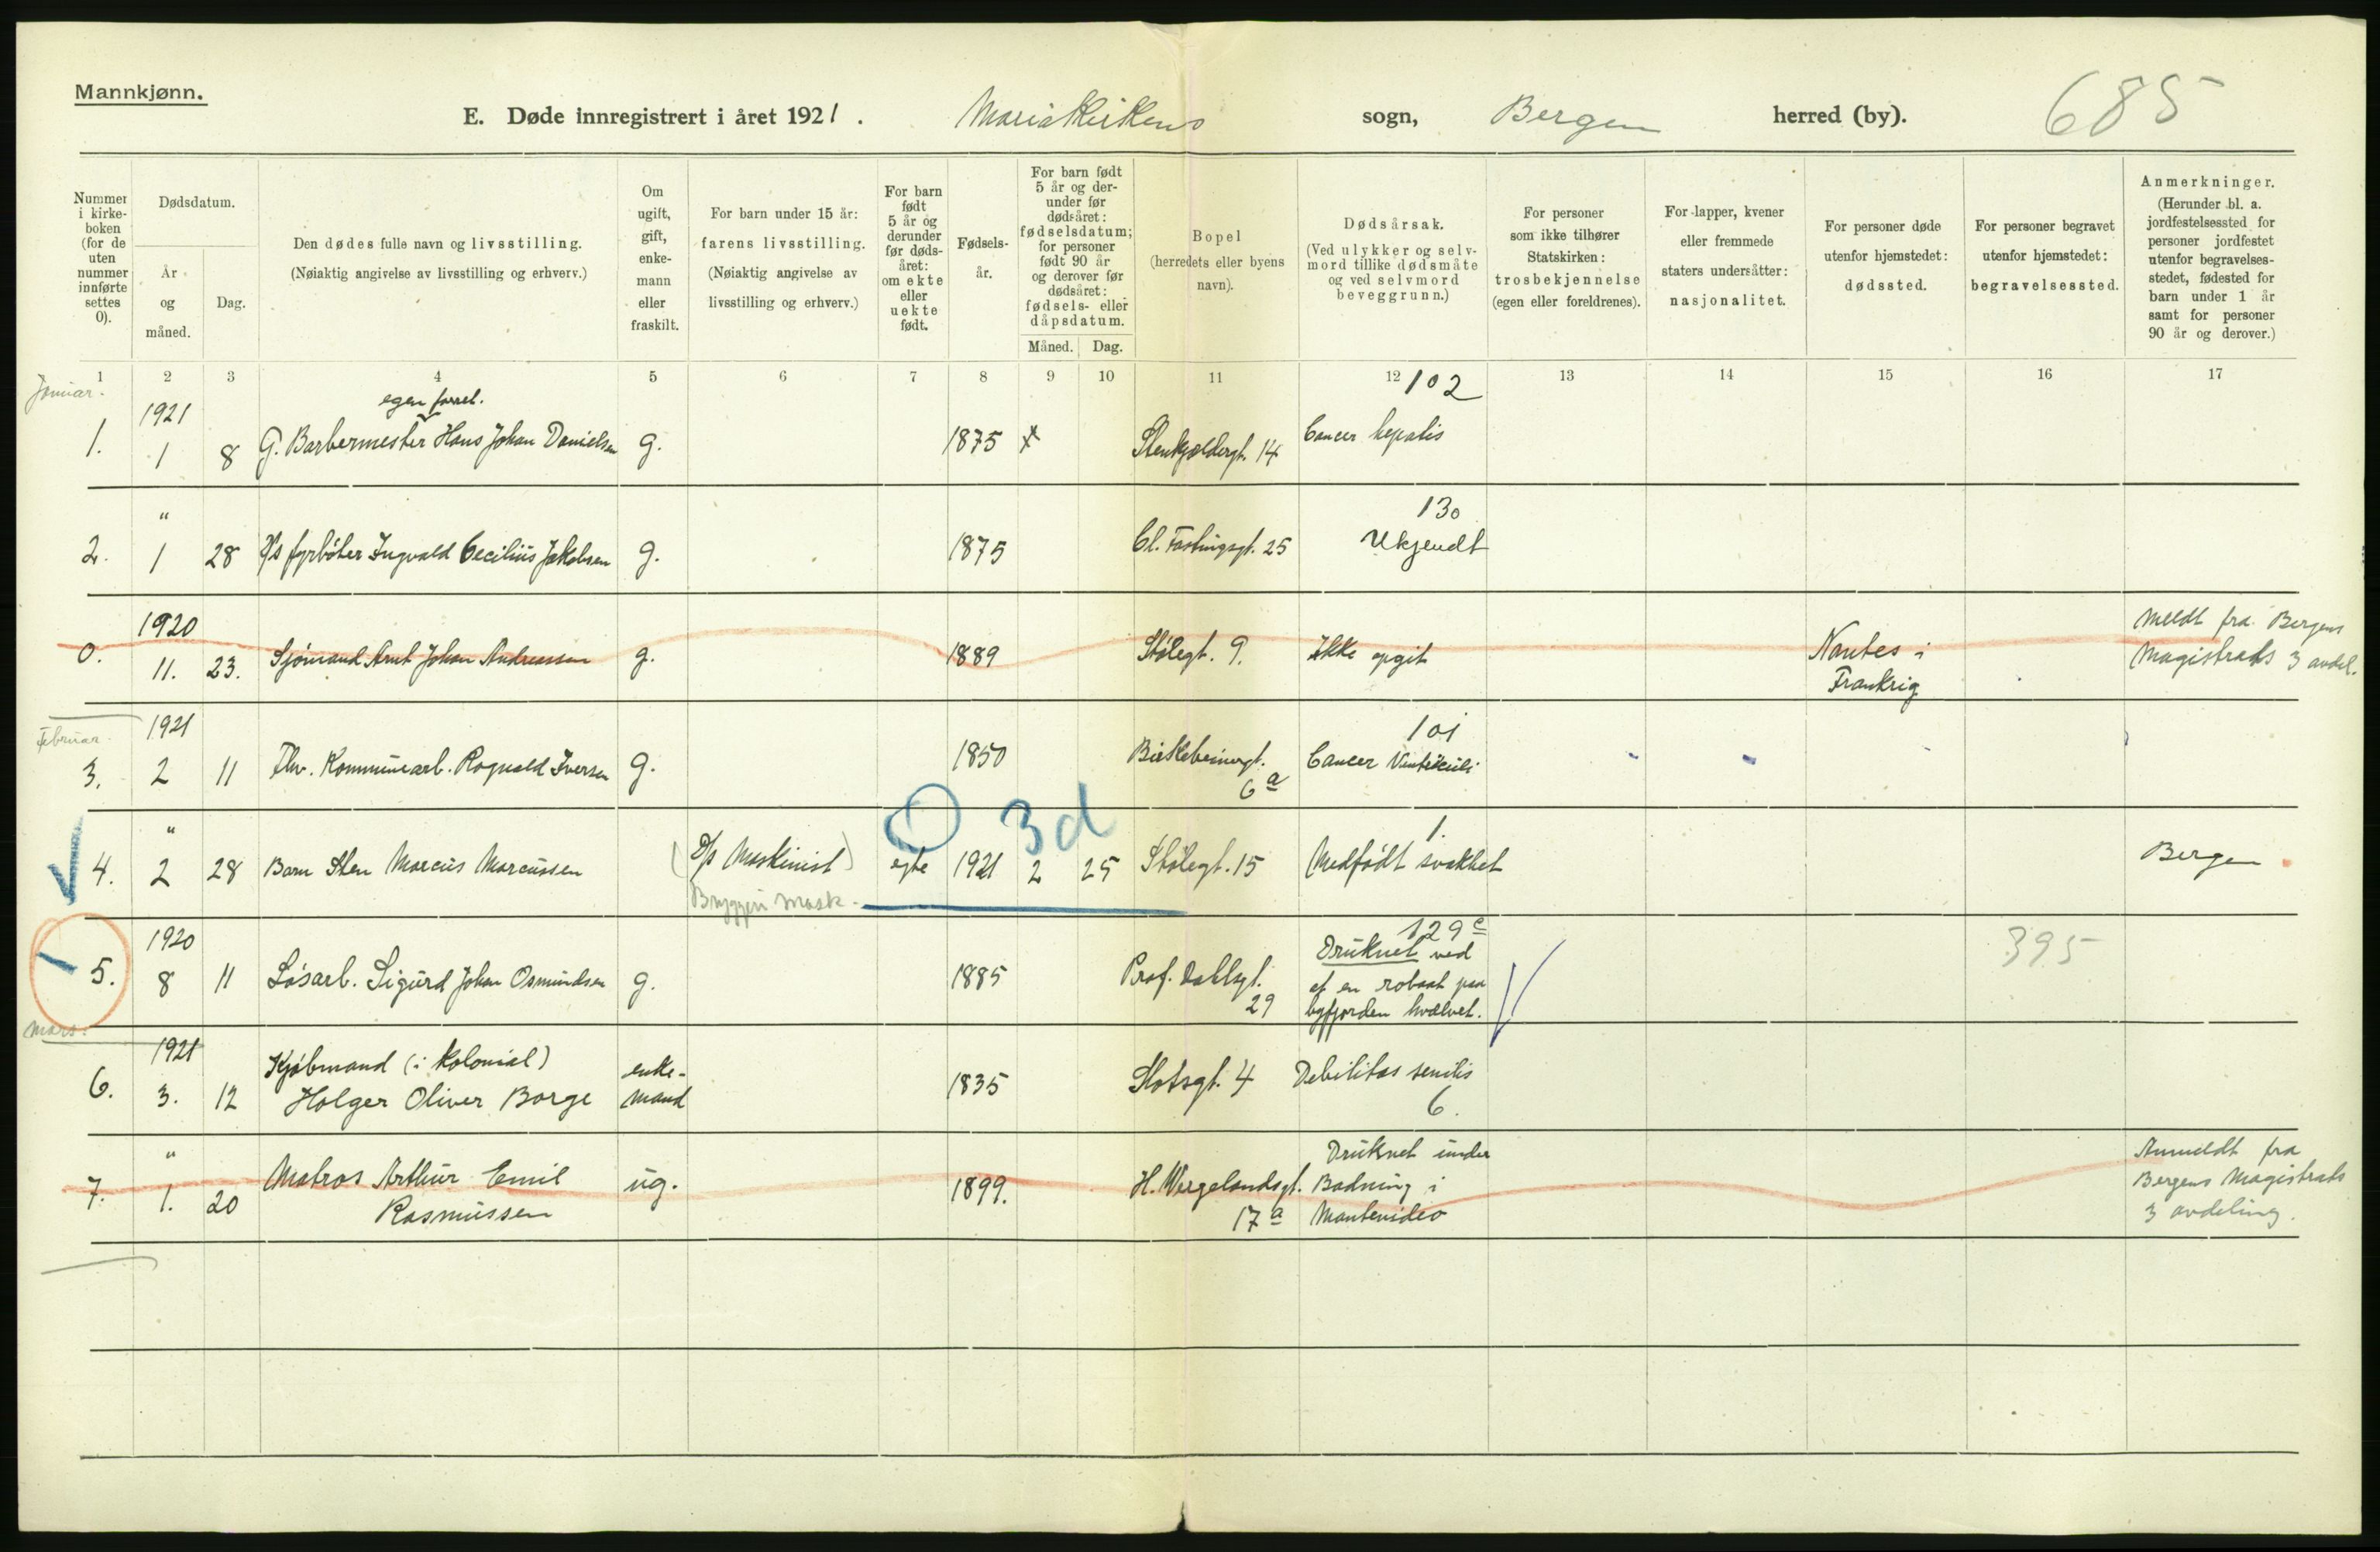 Mannkjønn.
E. Døde innregistrert i året 1921. Mariakirkens sogn, Bergen herred (by). 685
Nummer i kirkeboken (for de uten nummer innførte settes 0).
Dødsdatum.
År og måned.
Dag.
Den dødes fulle navn og livsstilling.
(Nøiaktig angivelse av livsstilling og erhverv.)
Om ugift, gift, enkemann eller fraskilt.
For barn under 15 år:
farens livsstilling.
(Nøiaktig angivelse av livsstilling og erhverv.)
For barn født 5 år og derunder før dødsåret: om ekte eller uekte født.
Fødselsår.
For barn født 5 år og derunder før dødsåret: fødselsdatum; for personer født 90 år og derover før dødsåret: fødsels- eller dåpsdatum.
Måned. Dag.
Bopel
(herredets eller byens navn).
Dødsårsak.
(Ved ulykker og selvmord tillike dødsmåte og ved selvmord beveggrunn.)
For personer som ikke tilhører Statskirken:
trosbekjennelse
(egen eller foreldrenes).
For lapper, kvener eller fremmede staters undersåtter:
nasjonalitet.
For personer døde utenfor hjemstedet:
dødssted.
For personer begravet utenfor hjemstedet:
begravelsessted.
Anmerkninger.
(Herunder bl. a. jordfestelsessted for personer jordfestet utenfor begravelsesstedet, fødested for barn under 1 år samt for personer 90 år og derover.)
1 2 3 4 5 6 7 8 9 10 11 12 13 14 15 16 17
Januar.
egen forret. 102
1. 1921 1 8 G. Barbermester Hans Johan Danielsen g. 1875 Stenkjeldergt. 14 Cancer hepatis
130
2. " 1 28 fyrbøter Ingvald Cecilius Jakobsen g. 1875 Cl. Fastingsgt. 25 Ukjendt
0. 1920 11. 23. Sjømand Arnt Johan Andreassen g. 1889 Stølegt. 9. Ikke opgit Nantes i Frankrig Meldt fra Bergens Magistrats 3 avdel.
Februar.
101
3. 1921 2 11 Fhv. Kommunearb. Ragnvald Iversen g. 1850 Birkebeinergt. 6a Cancer Ventriculi
3d
1.
4. " 2 28 Barn Sten Marcus Marcussen (D/s Maskinist) egte 1921 2 25 Stølegt. 15 Medfødt svakhet Bergen
Bryggeri mask.
129c
5. 1920 8 11 Løsarb. Sigurd Johan Osmundsen g. 1885 Prof. Dahlsgt. 29 Druknet ved at en robaat paa byfjorden hvælvet. 395
Mars.
6. 1921 3. 12 Kjøbmand (i kolonial) Holger Oliver Borge enkemand 1835 Slotsgt. 4 Debilitas senilis
6.
7. " 1. 20 Matros Arthur Emil Rasmussen ug. 1899. H. Wergelandsgt. 17a Druknet under Badning i Montevideo Anmeldt fra Bergens Magistrats 3 avdeling.